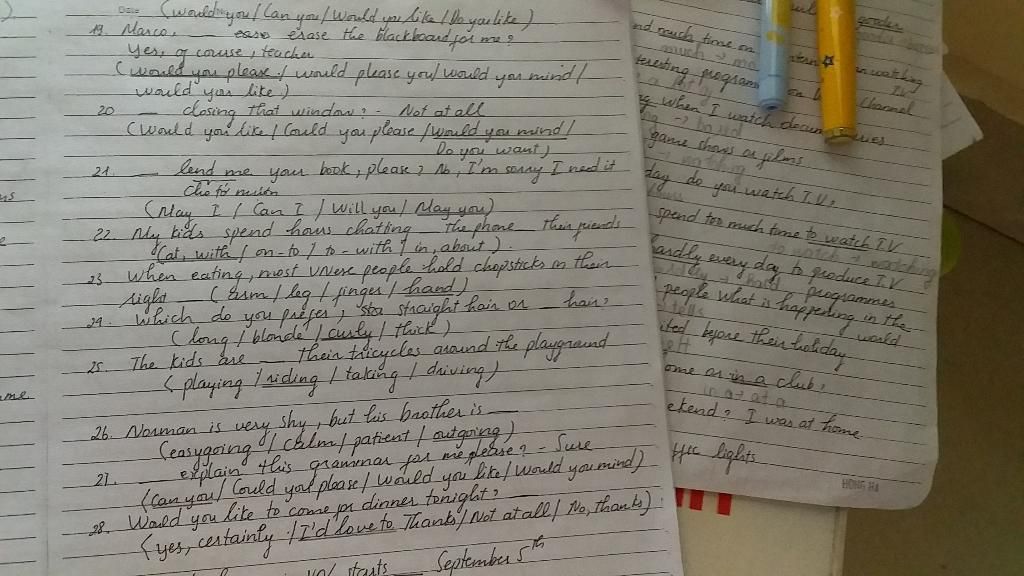 (would you / Can you / Would you like / Do you like)
19. Marco, __ erase the blackboard for me?
Yes, of course, teacher
(would you please / would please you / would you mind /
would you like)
20 __ closing that window? - Not at all
(Would you like / Could you please / would you mind /
Do you want)
21. __ lend me your book, please? No, I'm sorry I need it
(May I / Can I / Will you / May you)
22. My kids spend hours chatting __ the phone __ their friends
(at, with / on - to / to - with / in, about).
23 When eating, most people hold chopsticks in their
right __ (arm / leg / finger / hand)
24. Which do you prefer, straight hair or __ hair?
(long / blonde / curly / thick)
25 The kids are __ their tricycles around the playground
(playing / riding / taking / driving)
26. Norman is very shy, but his brother is __
(easygoing / calm / patient / outgoing)
27. __ explain this grammar for me please? - Sure
(Can you / Could you please / Would you like / Would you mind)
28 Would you like to come for dinner tonight? __
(yes, certainly / I'd love to thanks / Not at all / No, thanks)
starts __ September 5th
nd much time on watching
T.V
programm on channel
when I watch
game shows or films
day do you watch T.V?
spend too much time to watch T.V
hardly every day to produce T.V
programmes
people what is happening in the
world
before their holiday
ome or in a club?
in a → at a
ekend? I was at home.
lights
HONG HA